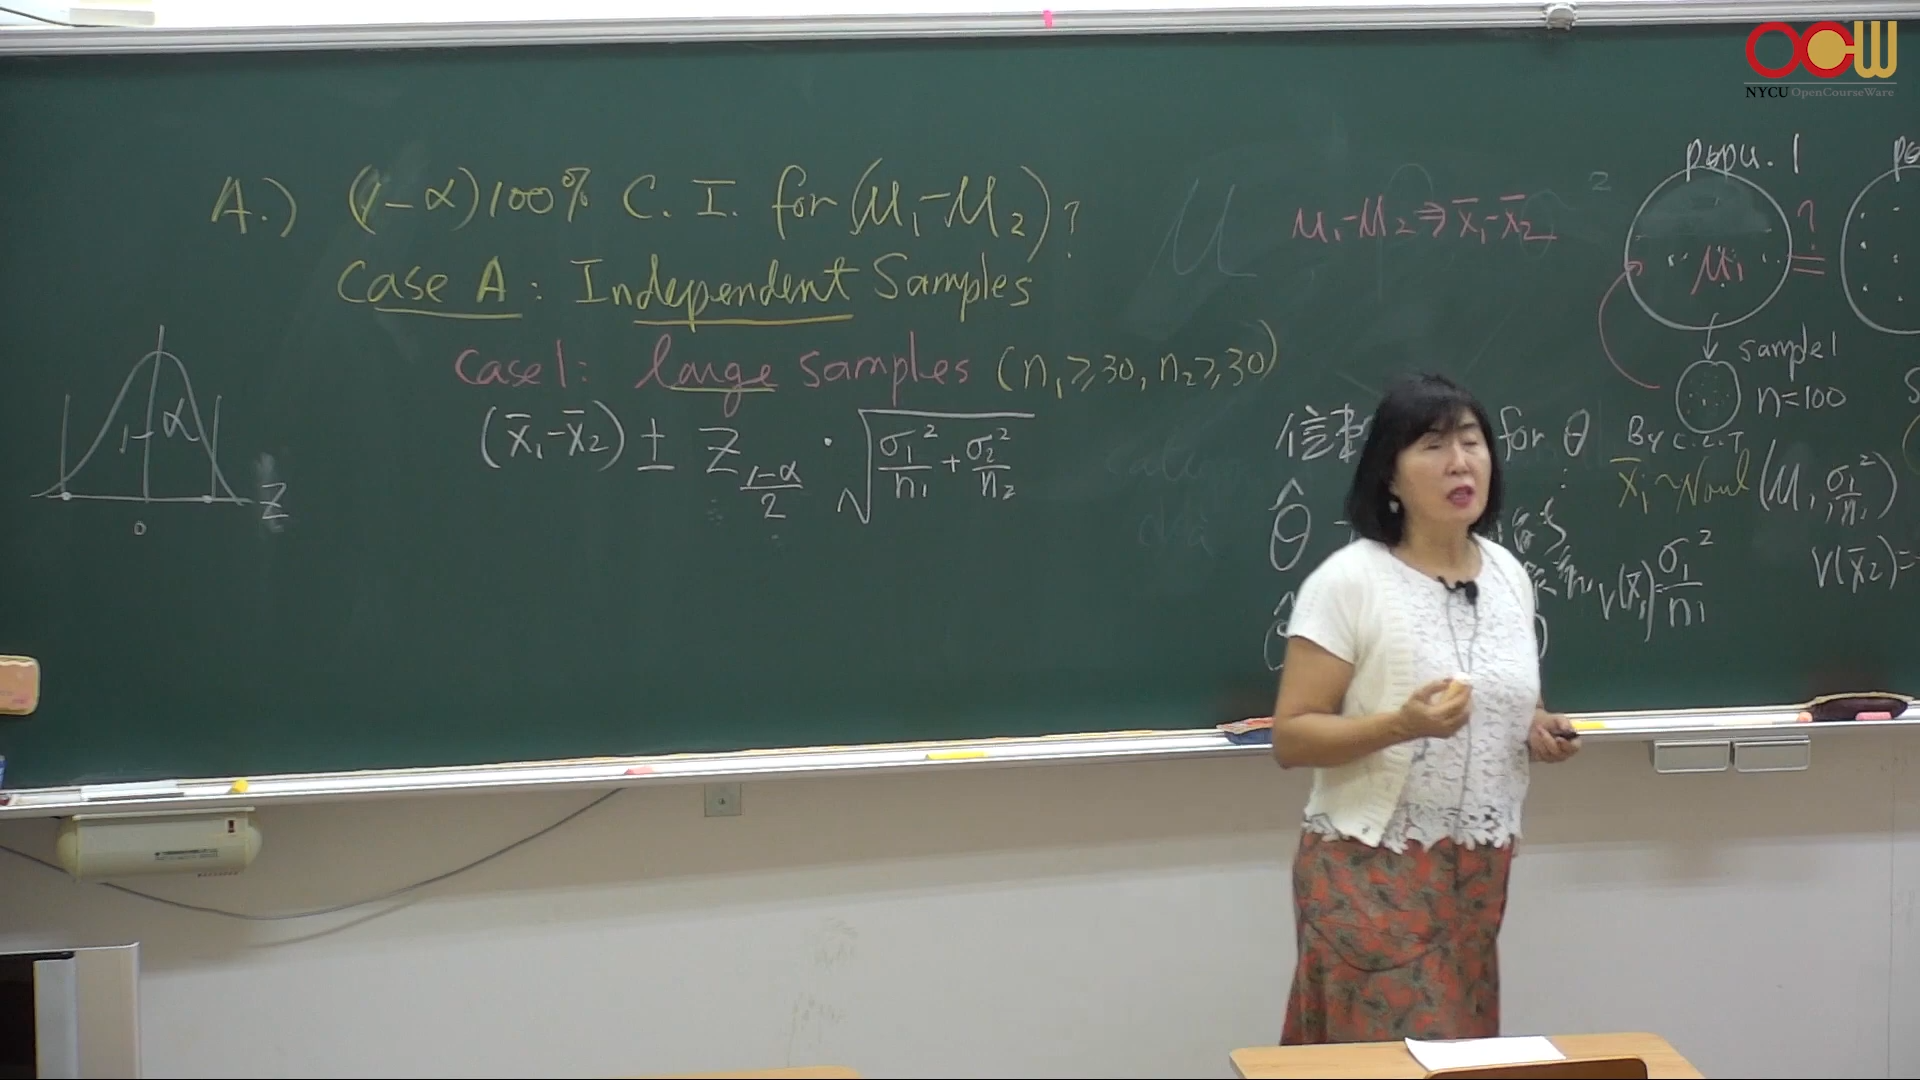 OCW
NYCU OpenCourseWare
A.) (1-α)100% C.I. for (μ₁-μ₂)?
Case A: Independent Samples
Case1: large samples (n₁≥30, n₂≥30)
(x̄₁-x̄₂) ± Z_{\frac{1-α}{2}} · √(σ₁²/n₁ + σ₂²/n₂)
1-α
0
Z
μ
μ₁-μ₂ ⇒ x̄₁-x̄₂
2
popu. 1
μ₁
?
=
sample1
n=100
信 for θ
θ̂
By C.L.T
x̄₁~Normal(μ₁, σ₁²/n₁)
V(x̄₁)=σ₁²/n₁
V(x̄₂)=